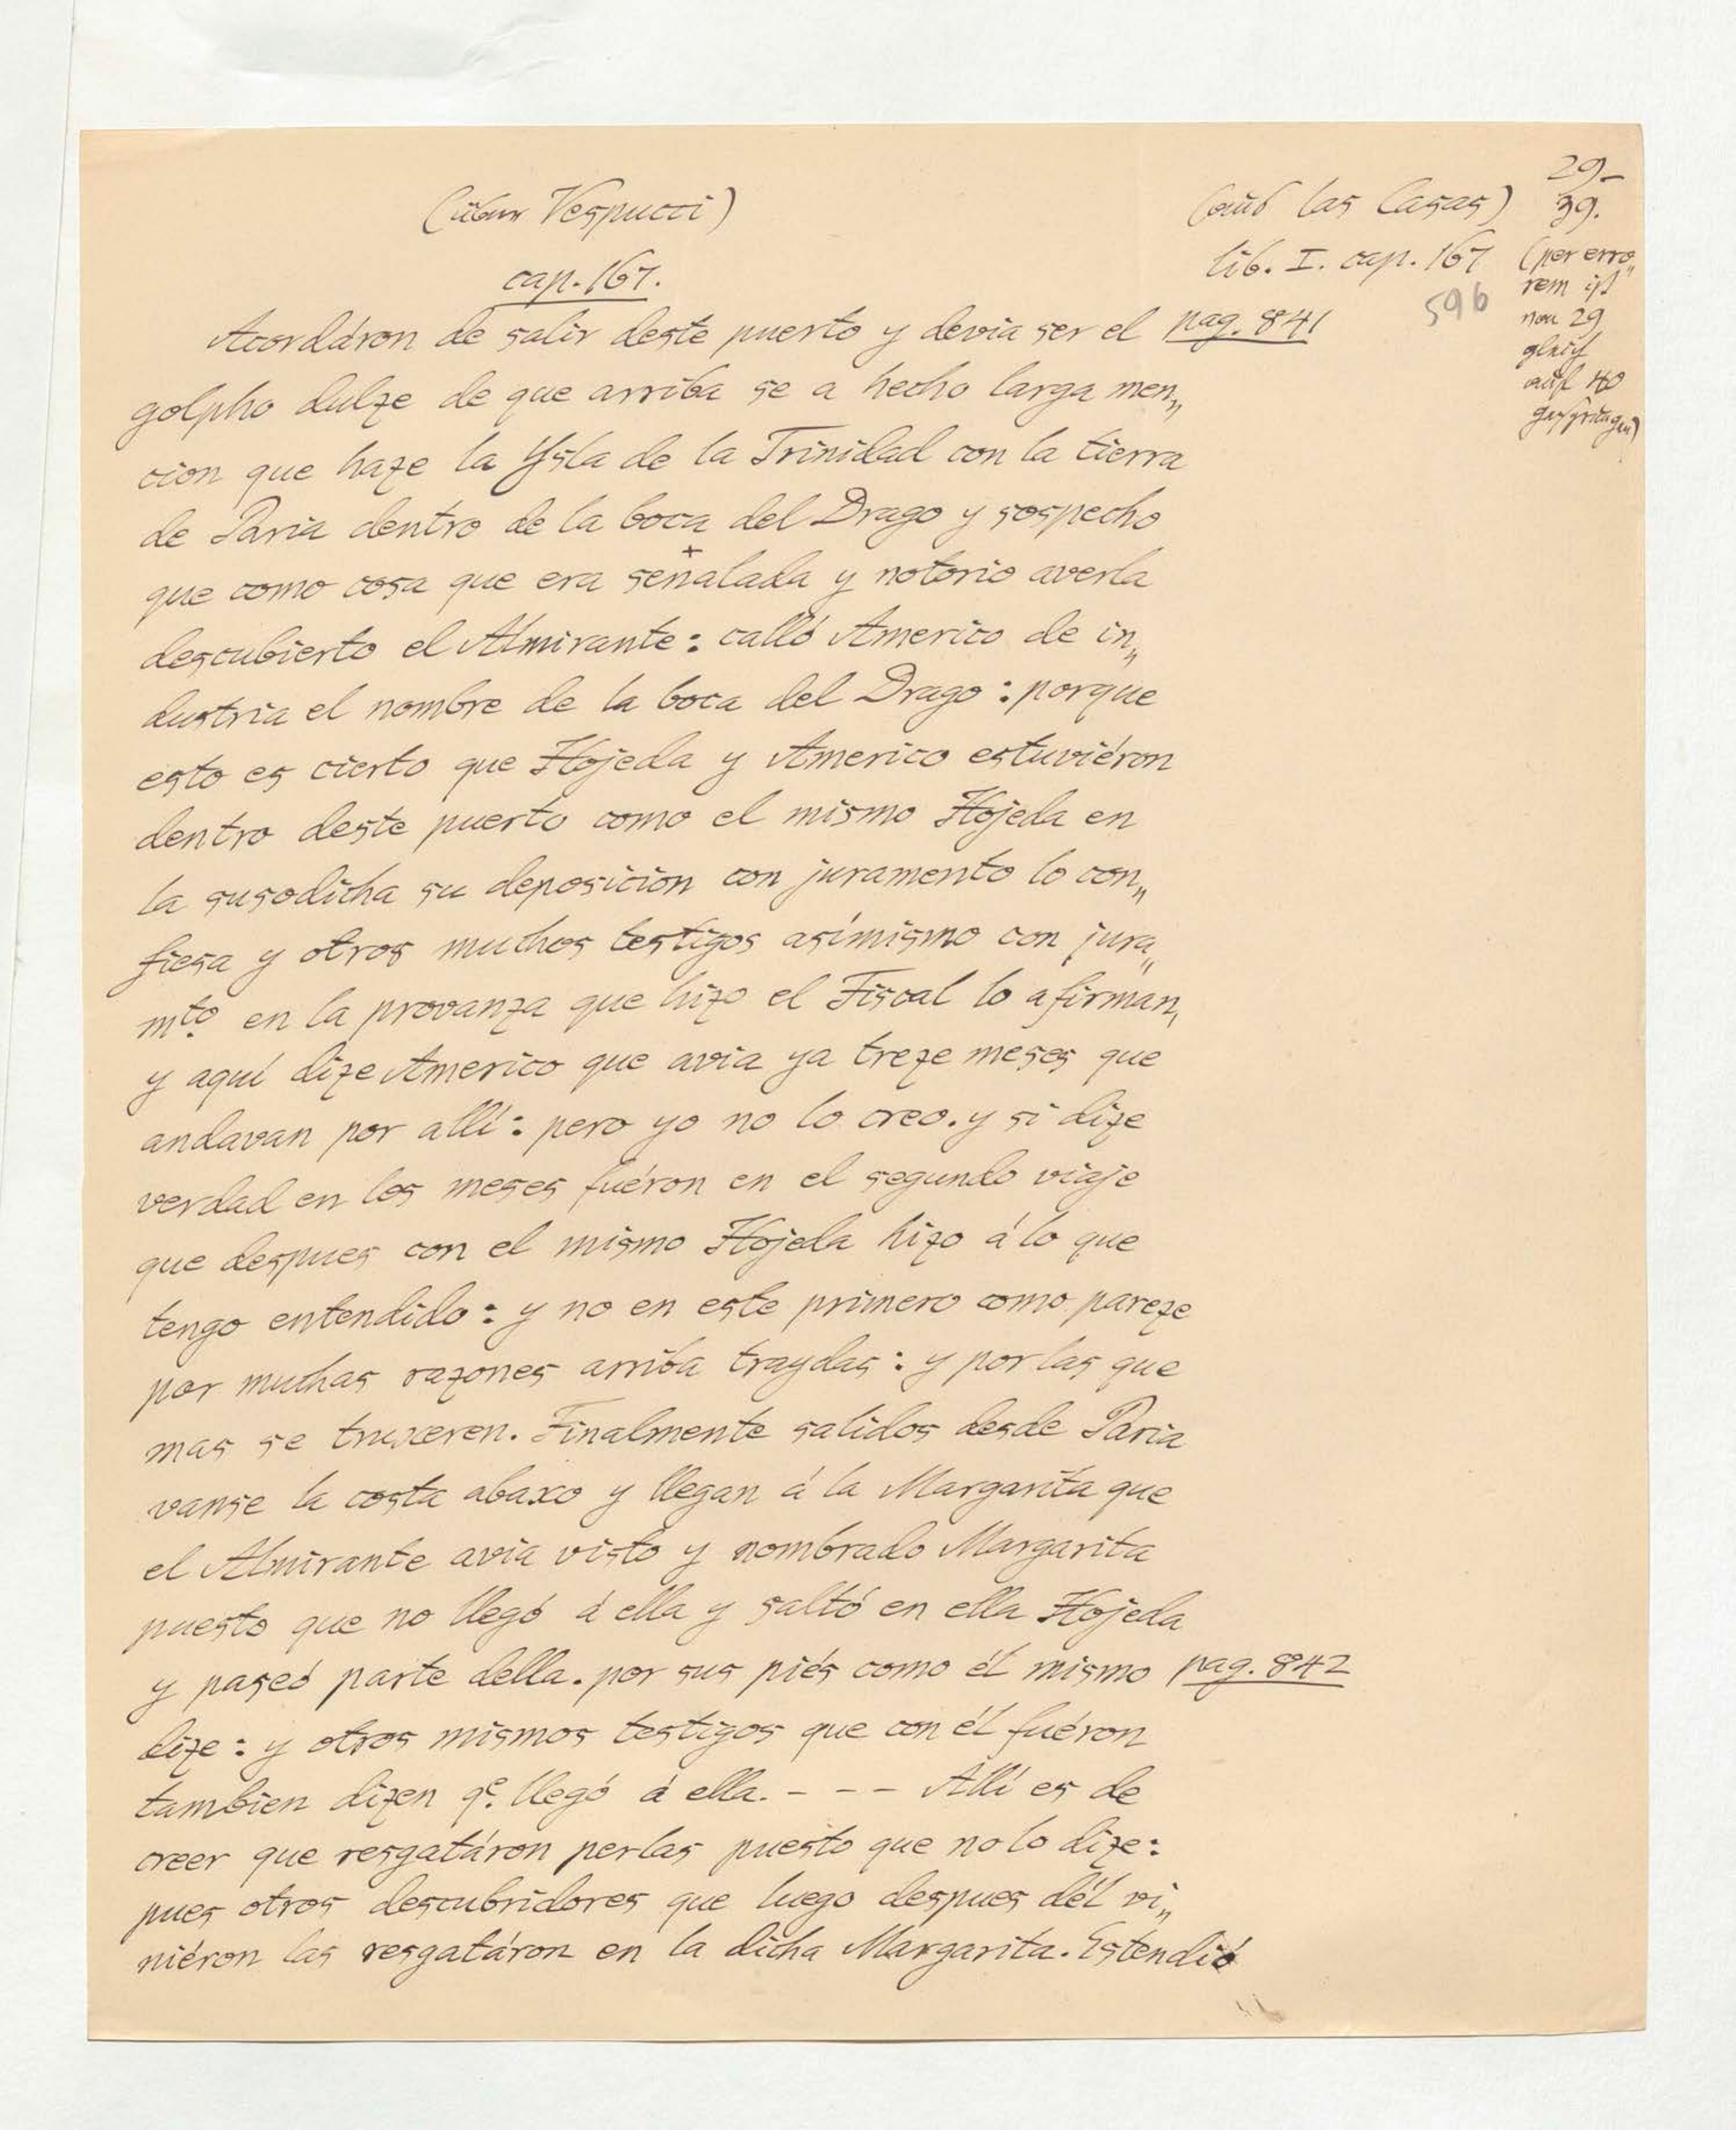 29-
39.
(über Vespucci)
(aus las Casas)
lib. I. cap. 167
(per erro„
rem ist
von 29
gleich
auf 40
gesprungen)
596
cap. 167.
Acordáron de salir deste puerto y devia ser el pag. 841
golpho dulze de que arriba se a hecho larga men„
cion que haze la Ysla de la Trinidad con la tierra
de Paria dentro de la boca del Drago y sospecho
que como cosa que era señalada y notorio averla
descubierto el Almirante: calló Americo de in„
dustria el nombre de la boca del Drago: porque
esto es cierto que Hojeda y Americo estuviéron
dentro deste puerto como el mismo Hojeda en
la susodicha su deposicion con juramento lo con„
fiesa y otros muchos testigos asímismo con jura„
mto. en la provanza que hizo el Fiscal lo afirman,
y aquí dize Americo que avia ya treze meses que
andavan por allí: pero yo no lo creo. y si dize
verdad en los meses fuéron en el segundo viaje
que despues con el mismo Hojeda hizo á lo que
tengo entendido: y no en este primero como pareze
por muchas razones arriba traydas: y por las que
mas se truxeren. Finalmente salidos desde Paria
vanse la costa abaxo y llegan á la Margarita que
el Almirante avia visto y nombrado Margarita
puesto que no llegó á ella y saltó en ella Hojeda
y paseó parte della. por sus piés como él mismo pag. 842
dize: y otros mismos testigos que con él fuéron
tambien dizen qe. llegó á ella. - - - Allí es de
creer que resgatáron perlas puesto que no lo dize:
pues otros descubridores que luego despues dél vi„
niéron las resgatáron en la dicha Margarita. Estendió